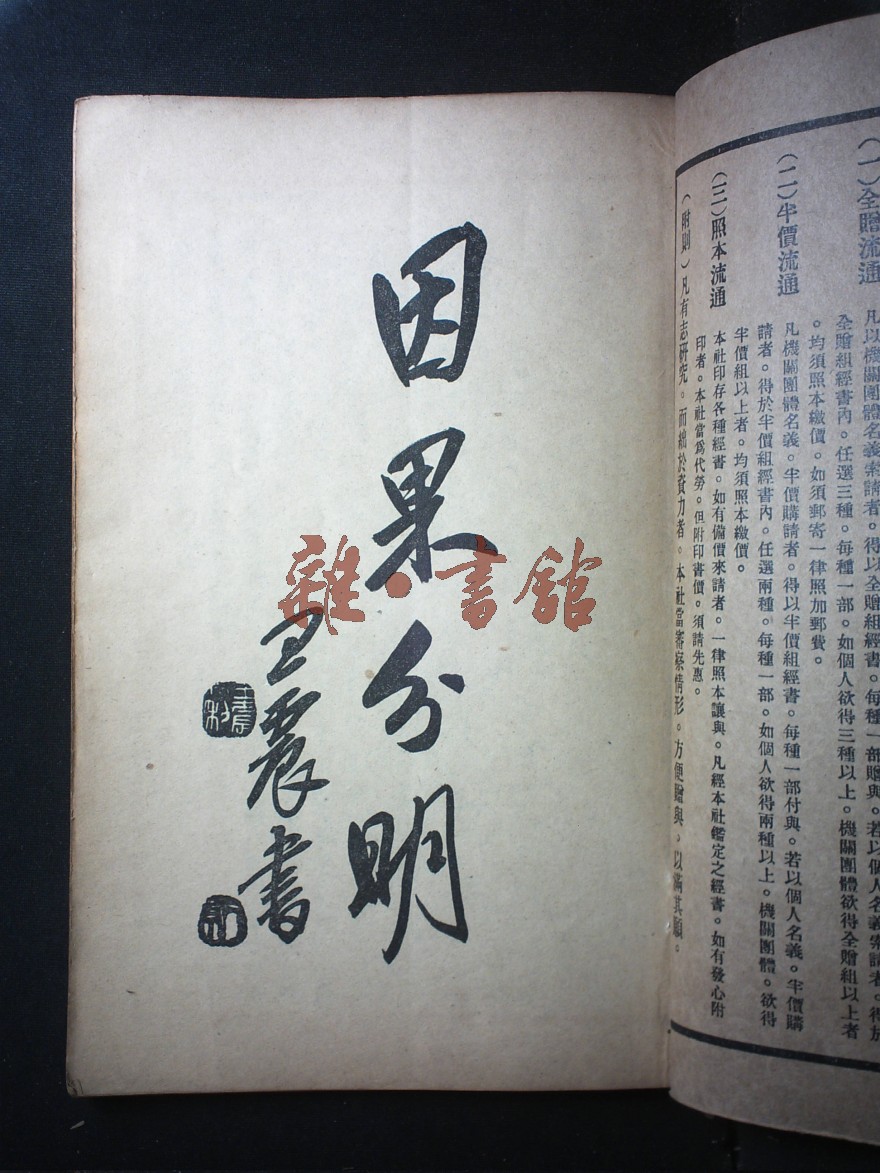 (一)全贈流通
凡以機關團體名義索請者。得以全贈組經書。每種一部贈與。若以個人名義索請者。得於
全贈組經書內。任選三種。每種一部。如個人欲得三種以上。機關團體欲得全贈組以上者
。均須照本繳價。如須郵寄一律照加郵費。
(二)半價流通
凡機關團體名義。半價購請者。得以半價組經書。每種一部付與。若以個人名義。半價購
請者。得於半價組經書內。任選兩種。每種一部。如個人欲得兩種以上。機關團體。欲得
半價組以上者。均須照本繳價。
(三)照本流通
本社印存各種經書。如有備價來請者。一律照本讓與。凡經本社鑑定之經書。如有發心附
印者。本社當爲代勞。但附印書價。須請先惠。
(附則)凡有志研究。而絀於資力者。本社當審察情形。方便贈與。以滿其願。
因果分明
王震書
雜·書館